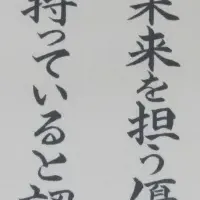 未来を担う優
持っていると認